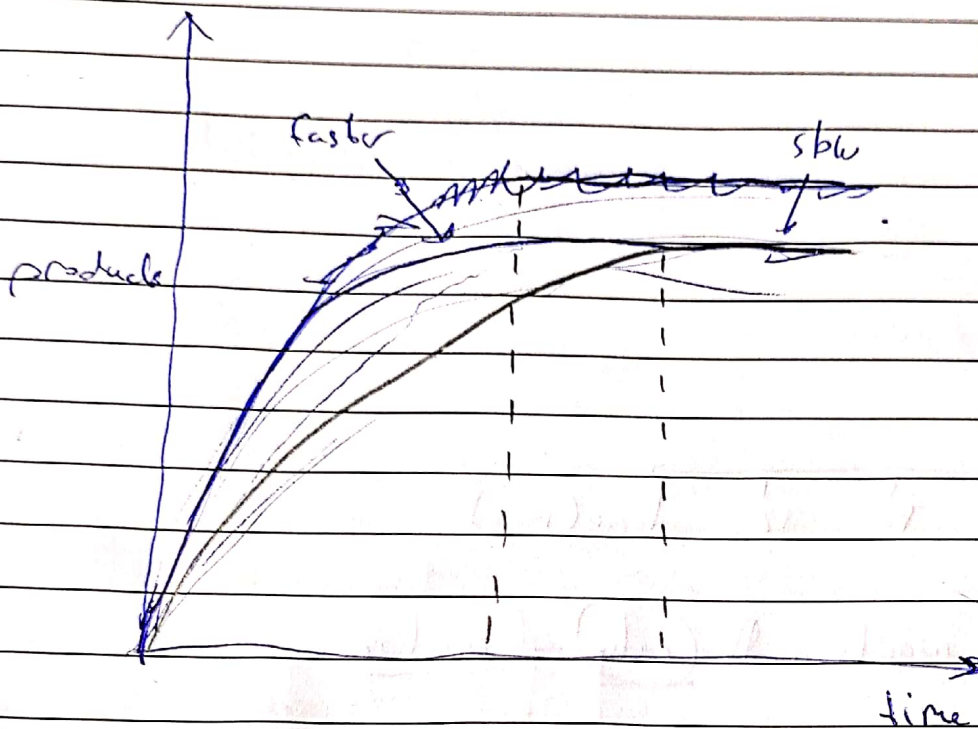 faster
slow
product
time